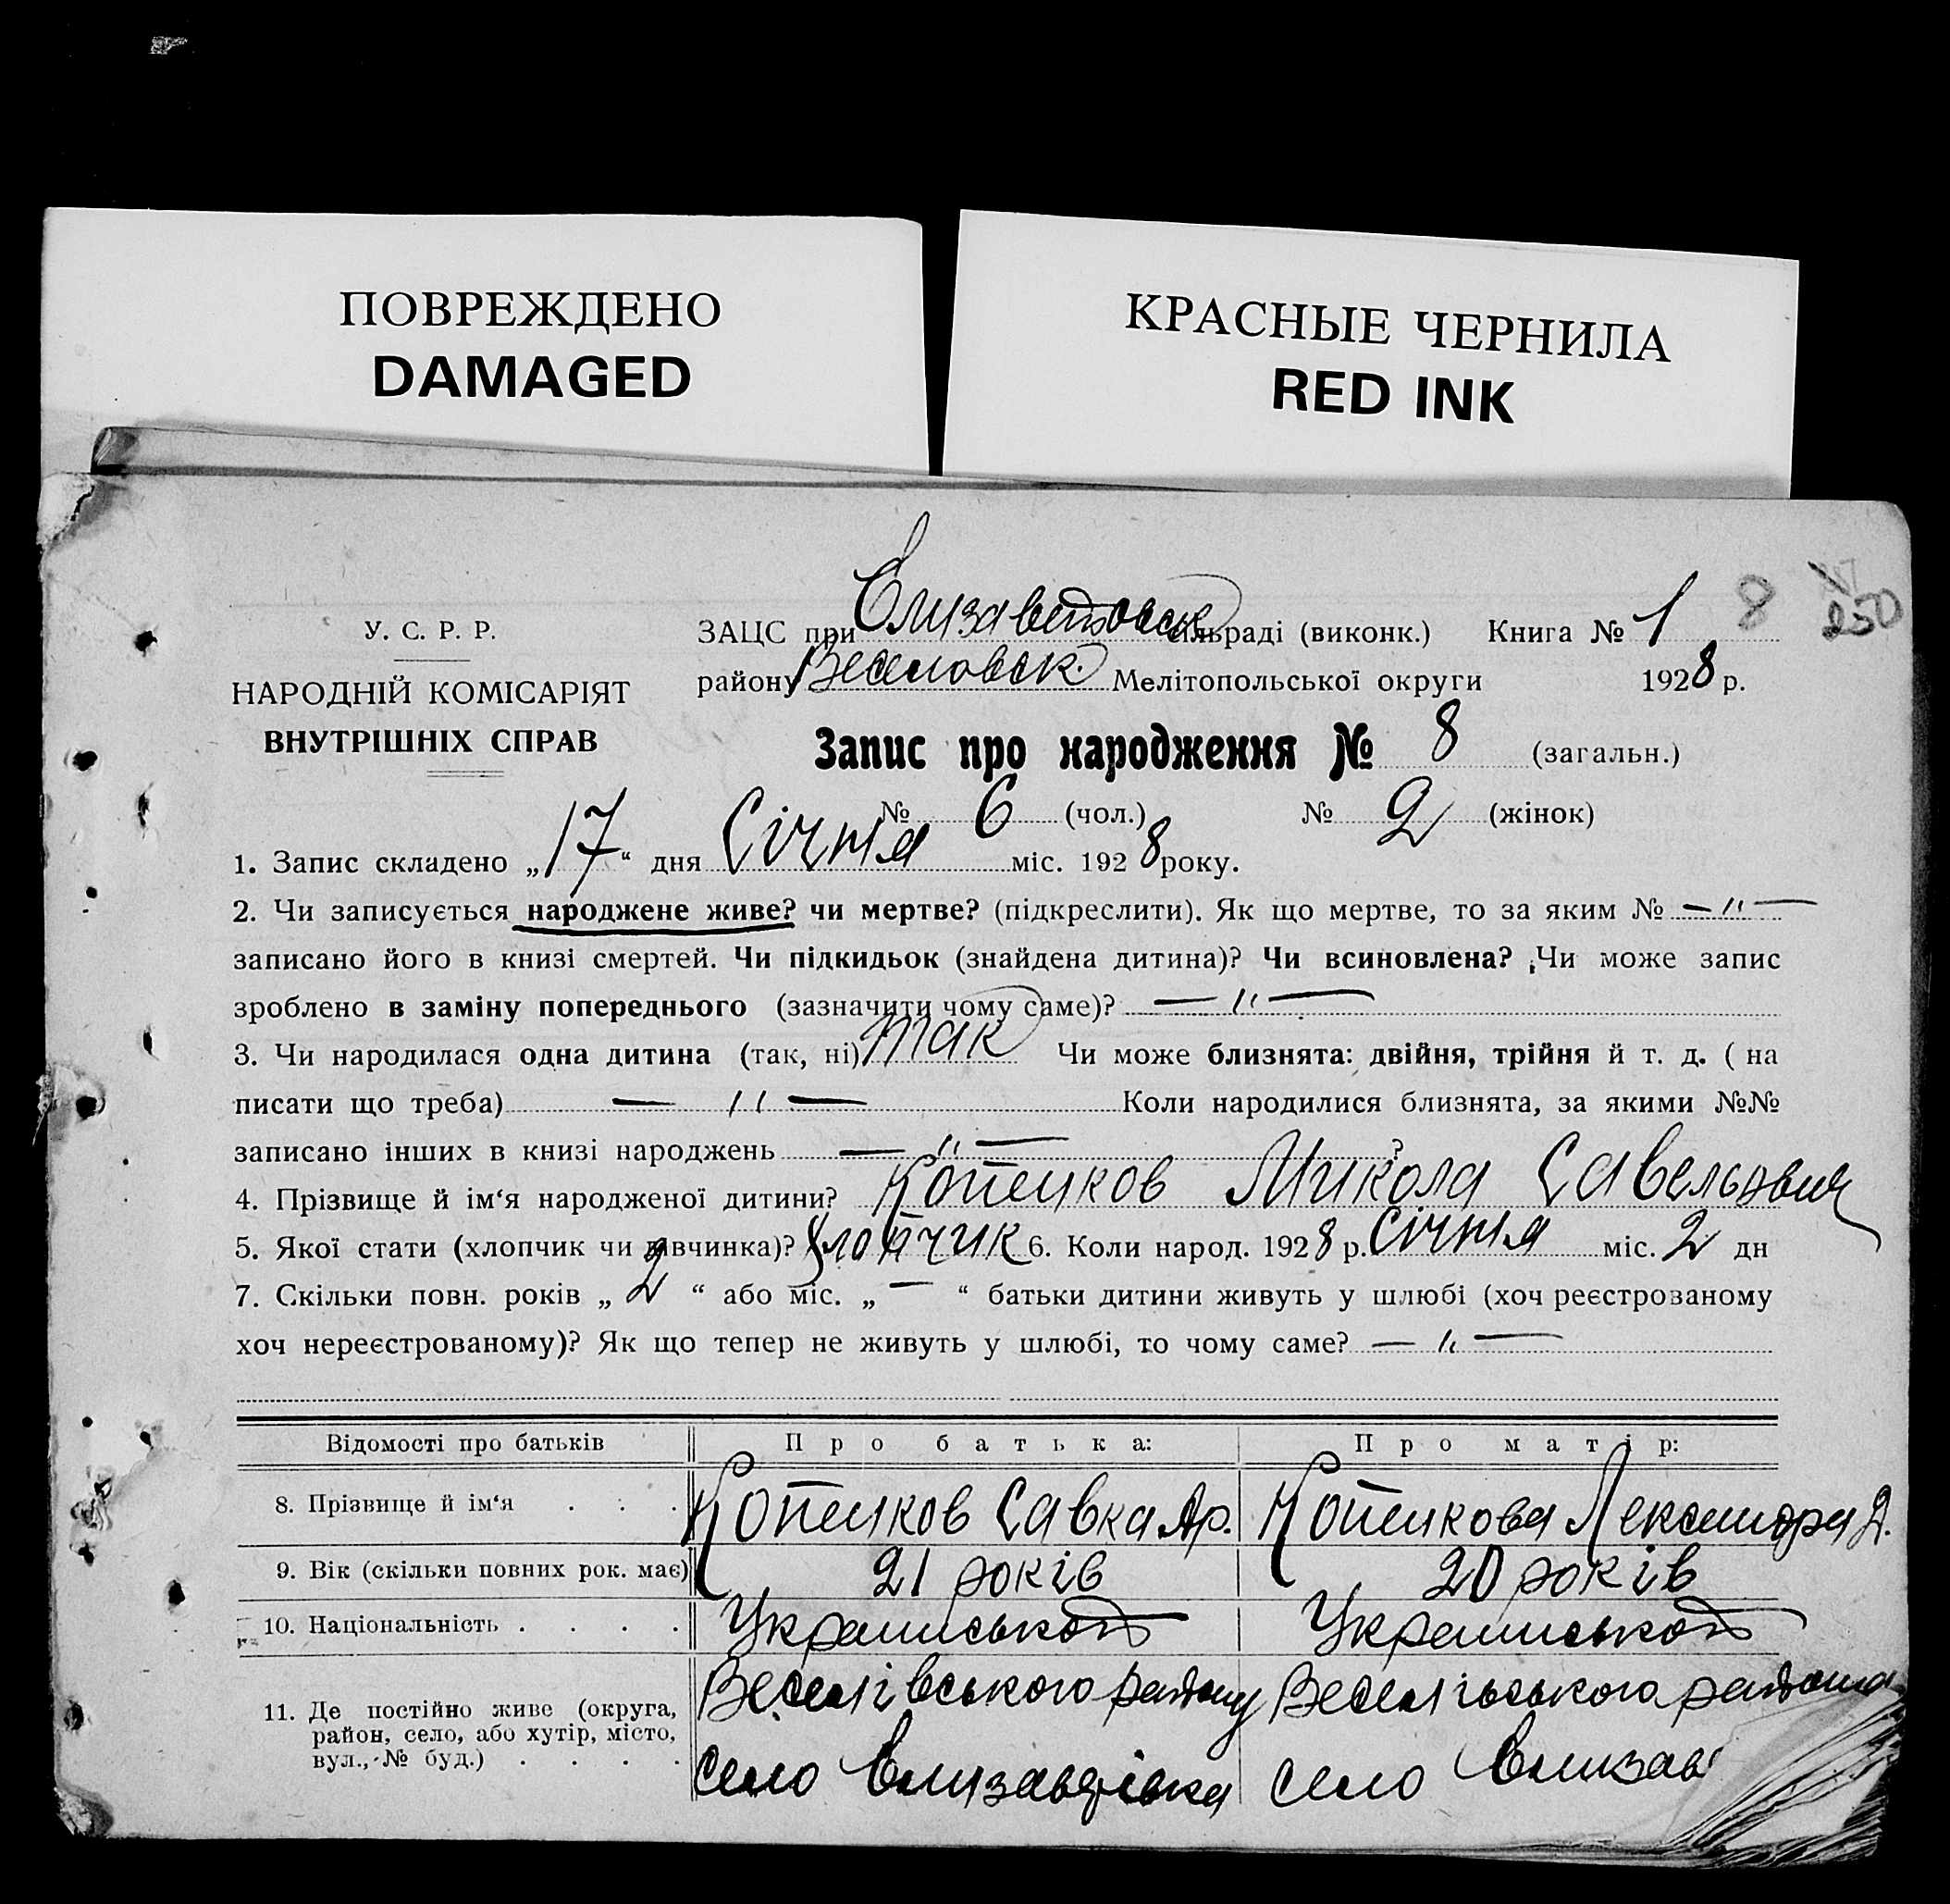 ПОВРЕЖДЕНО
DAMAGED
КРАСНЫЕ ЧЕРНИЛА
RED INK
У. С. Р. Р.
НАРОДНІЙ КОМІСАРІЯТ
ВНУТРІШНІХ СПРАВ
ЗАЦС при Єлизаветовск сільраді (виконк.) Книга № 1 8 250
району Веселовск. Мелітопольської округи 1928 р.
Запис про народження № 8 (загальн.)
№ 6 (чол.) № 2 (жінок)
1. Запис складено „17“ дня Січня міс. 1928 року.
2. Чи записується народжене живе? чи мертве? (підкреслити). Як що мертве, то за яким № — „ —
записано його в книзі смертей. Чи підкидьок (знайдена дитина)? Чи всиновлена? Чи може запис
зроблено в заміну попереднього (зазначити чому саме)? — „ —
3. Чи народилася одна дитина (так, ні) так Чи може близнята: двійня, трійня й т. д. ( на
писати що треба) — „ — Коли народилися близнята, за якими №№
записано інших в книзі народжень — „ — ?
4. Прізвище й ім‘я народженої дитини? Копейков Микола Савельович
5. Якої стати (хлопчик чи дівчинка)? Хлопчик 6. Коли народ. 1928 р. Січня міс. 2 дн
7. Скільки повн. років „ 2 “ або міс. „ — “ батьки дитини живуть у шлюбі (хоч реєстрованому
хоч нереєстрованому)? Як що тепер не живуть у шлюбі, то чому саме? — „ —
Відомості про батьків Про батька: Про матір:
8. Прізвище й ім‘я . . . Копейков Савка Ар. Копейкова Лександра Д.
9. Вік (скільки повних рок. має) 21 років 20 років
10. Національність . . . . Української Української
11. Де постійно живе (округа,
район, село, або хутір, місто,
вул., № буд.) . . . .
Веселівського району Веселівського района
село Єлизаветівка село Єлизав